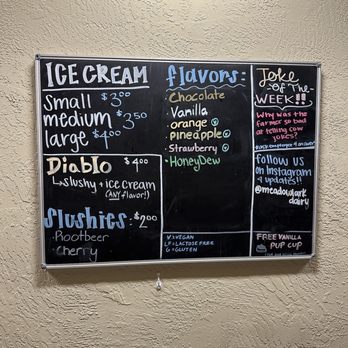 ICE CREAM
Small $3.00
medium $3.50
large $4.00
Diablo $4.00
Slushy + ice cream
(ANY flavor!)
Slushies: $2.00
Rootbeer
Cherry
flavors:
Chocolate
Vanilla
orange
Pineapple
Strawberry
HoneyDew
V=VEGAN
LF=LACTOSE FREE
G=GLUTEN
Joke
Of The
WEEK!!
Why was the
farmer so bad
at telling cow
jokes?
Follow us
on Instagram
4 updates!!
@meadowlark
dairy
FREE VANILLA
PUP CUP